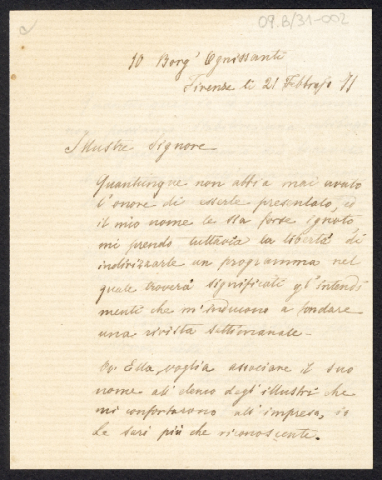 09.B/31-002
10 Borg' Ognissanti
Firenze li 21 Febbrajo 71
Illustre Signore
Quantunque non abbia mai avuto
l'onore di esserle presentato, ed
il mio nome le sia forse ignoto
mi prendo tuttavia la libertà di
indirizzarle un programma nel
quale troverà significati gl'intendi
menti che m'inducono a fondare
una rivista settimanale.
Ella voglia associare il suo
nome all'elenco degli illustri che
mi confortarono all'impresa, io
Le sarò più che riconoscente.